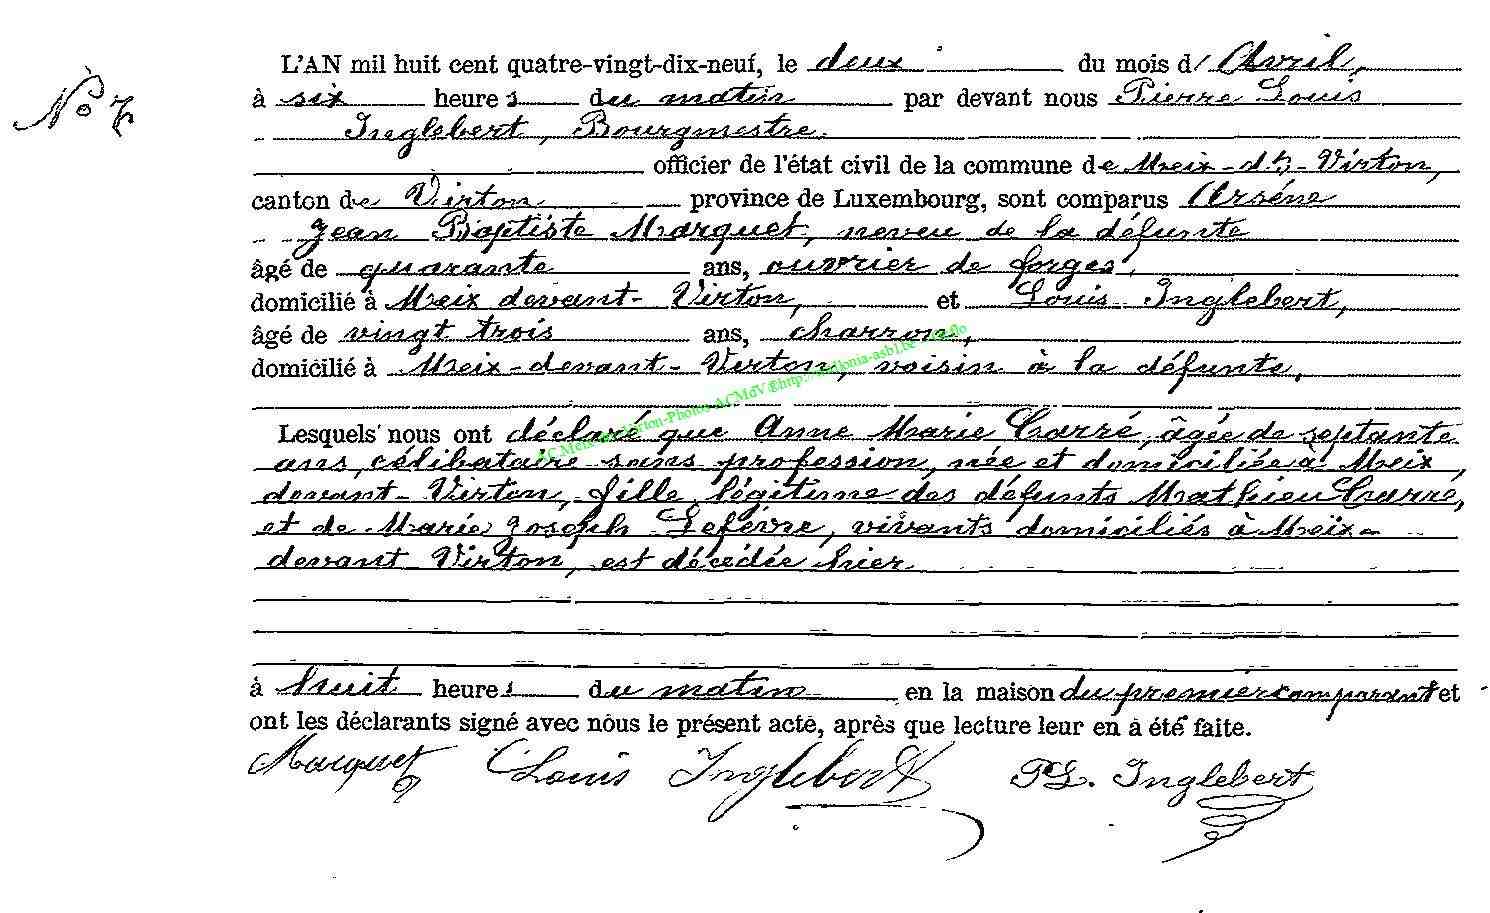 N° 7
L'AN mil huit cent quatre-vingt-dix-neuf, le deux du mois d'Avril,
à six heures du matin par devant nous Pierre Louis
Inglebert, Bourgmestre.
officier de l'état civil de la commune de Meix-dt-Virton,
canton de Virton province de Luxembourg, sont comparus Arsène
Jean Baptiste Marquet, neveu de la défunte
âgé de quarante ans, ouvrier de forges,
domicilié à Meix devant-Virton, et Louis Inglebert,
âgé de vingt trois ans, charron,
domicilié à Meix-devant-Virton, voisin à la défunte,
Lesquels nous ont déclaré que Anne Marie Carré, âgée de septante
ans, célibataire sans profession, née et domiciliée à Meix
devant-Virton, fille légitime des défunts Mathieu Carré,
et de Marie Joseph Lefèvre, vivants domiciliés à Meix-
devant Virton, est décédée hier
à huit heures du matin en la maison du premier comparant et
ont les déclarants signé avec nous le présent acte, après que lecture leur en a été faite.
Marquet Louis Inglebert PL. Inglebert